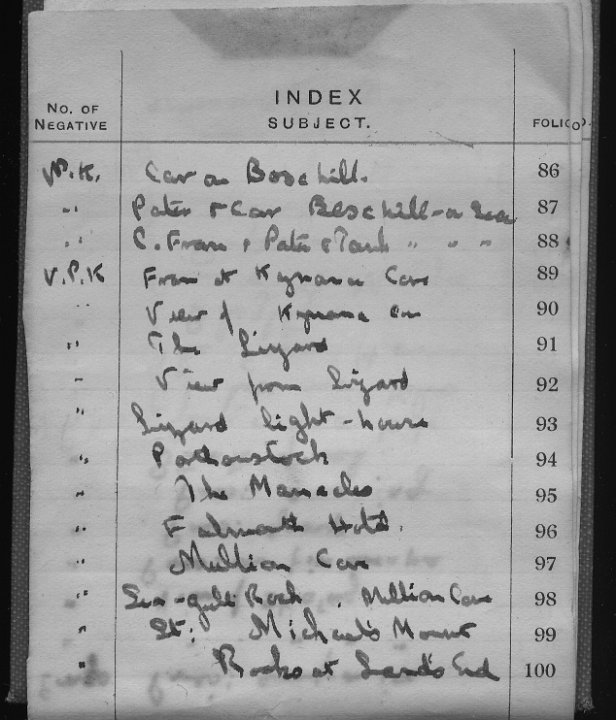 INDEX
No. of Negative SUBJECT. FOLIO.
V.P.K. Car Bexhill. 86
" Pater & Car Bexhill-on-Sea 87
" C. Fram & Pater & " " " 88
V.P.K Fram at Kynance Cove 89
" View of Kynance 90
" The Lizard 91
" View from Lizard 92
" Lizard light-house 93
" Porthoustock 94
" The Manacles 95
" Falmouth Hotel. 96
" Mullion Cove 97
" Sea-gull Rock, Mullion Cove 98
" St. Michael's Mount 99
" Rocks at Land's End 100